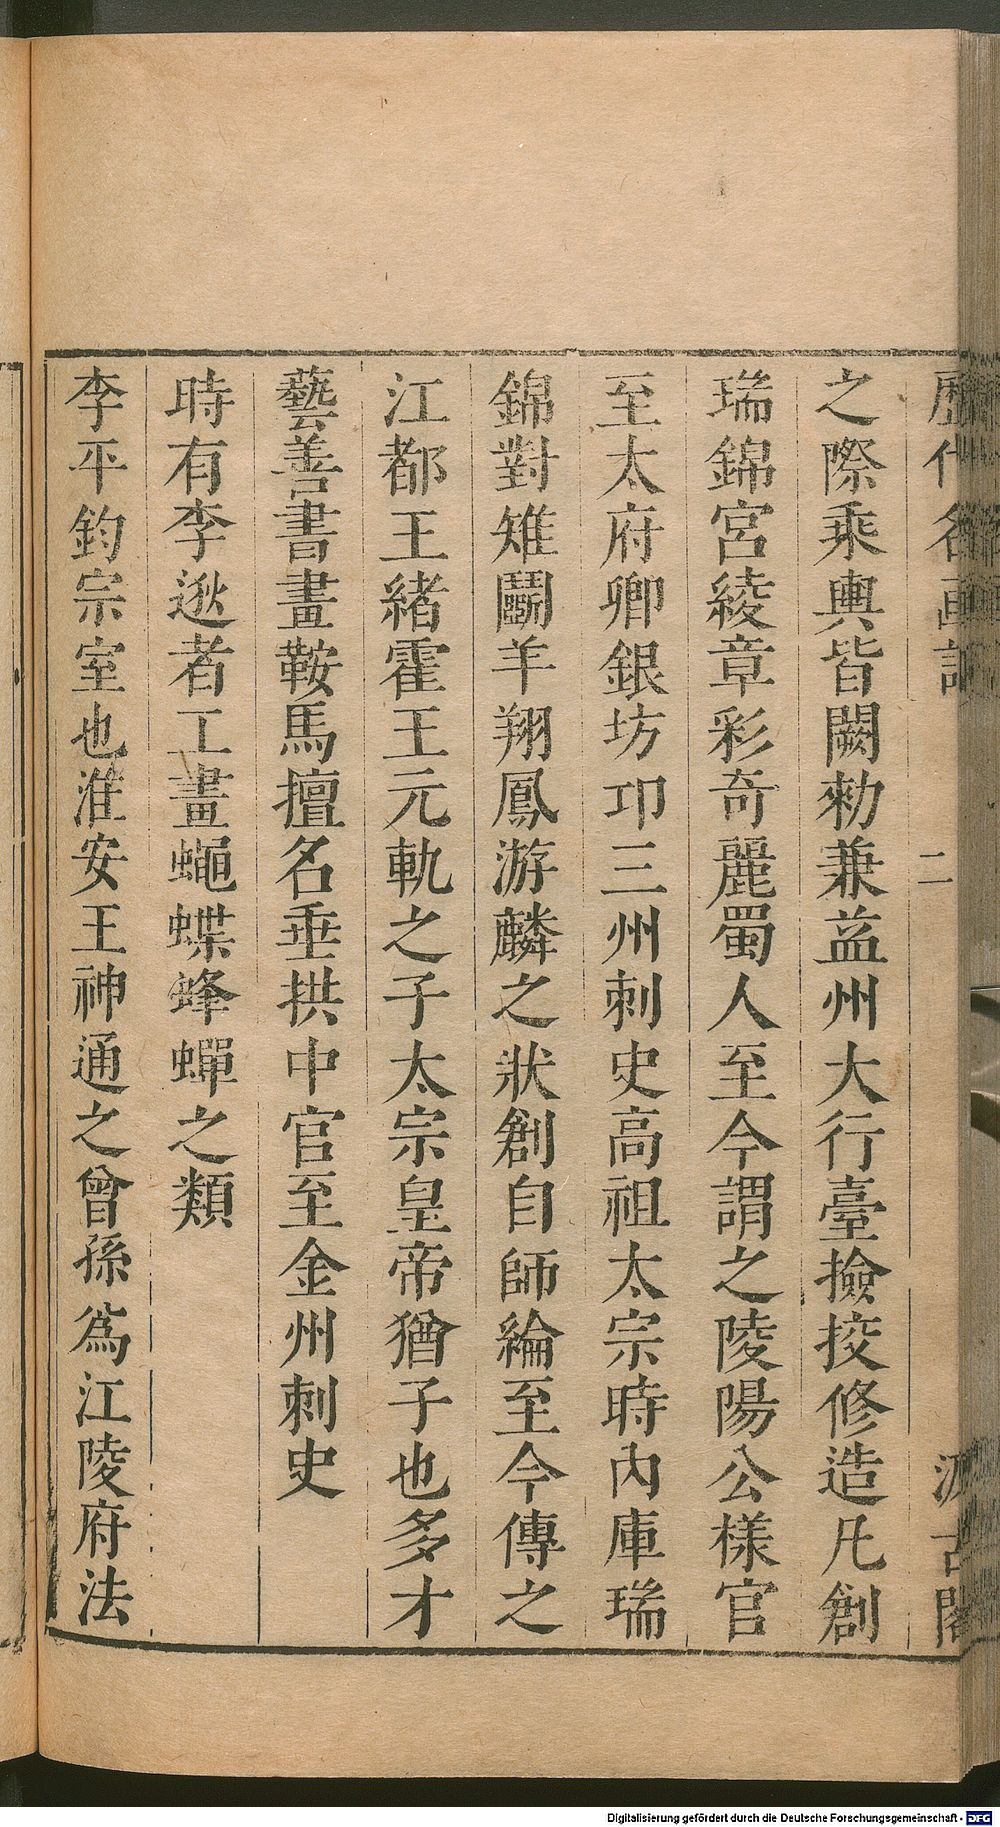 歷代名畫記
二
汲古閣
之際乘輿皆闕勑兼益州大行臺撿挍修造凡創
瑞錦宮綾章彩奇麗蜀人至今謂之陵陽公樣官
至太府卿銀坊卭三州刺史高祖太宗時內庫瑞
錦對雉鬬羊翔鳳游麟之狀創自師綸至今傳之
江都王緒霍王元軌之子太宗皇帝猶子也多才
藝善書畫鞍馬擅名垂拱中官至金州刺史
時有李逖者工畫蠅蝶蜂蟬之類
李平鈞宗室也淮安王神通之曾孫爲江陵府法
Digitalisierung gefördert durch die Deutsche Forschungsgemeinschaft - DFG